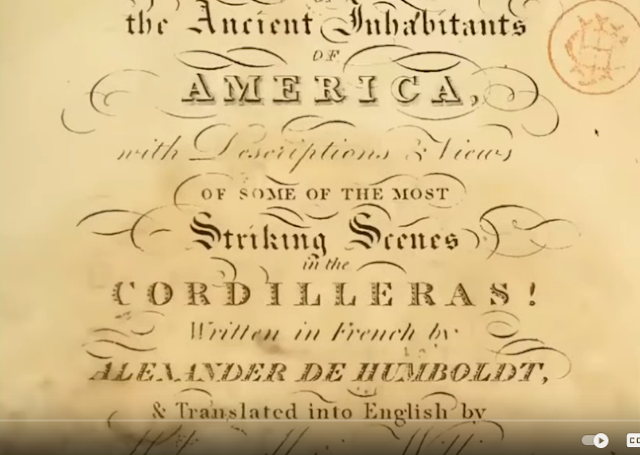 the Ancient Inhabitants
OF
AMERICA,
with Descriptions & Views
OF SOME OF THE MOST
Striking Scenes
in the
CORDILLERAS!
Written in French by
ALEXANDER DE HUMBOLDT,
& Translated into English by